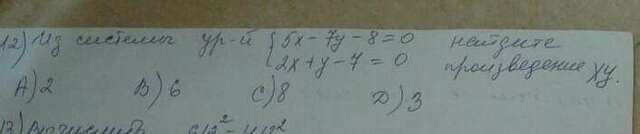 12) Из системы ур-й {5x-7y-8=0 найдите
{2x+y-7=0 произведение xy.
A) 2 B) 6 C) 8 D) 3
13) Вычислить